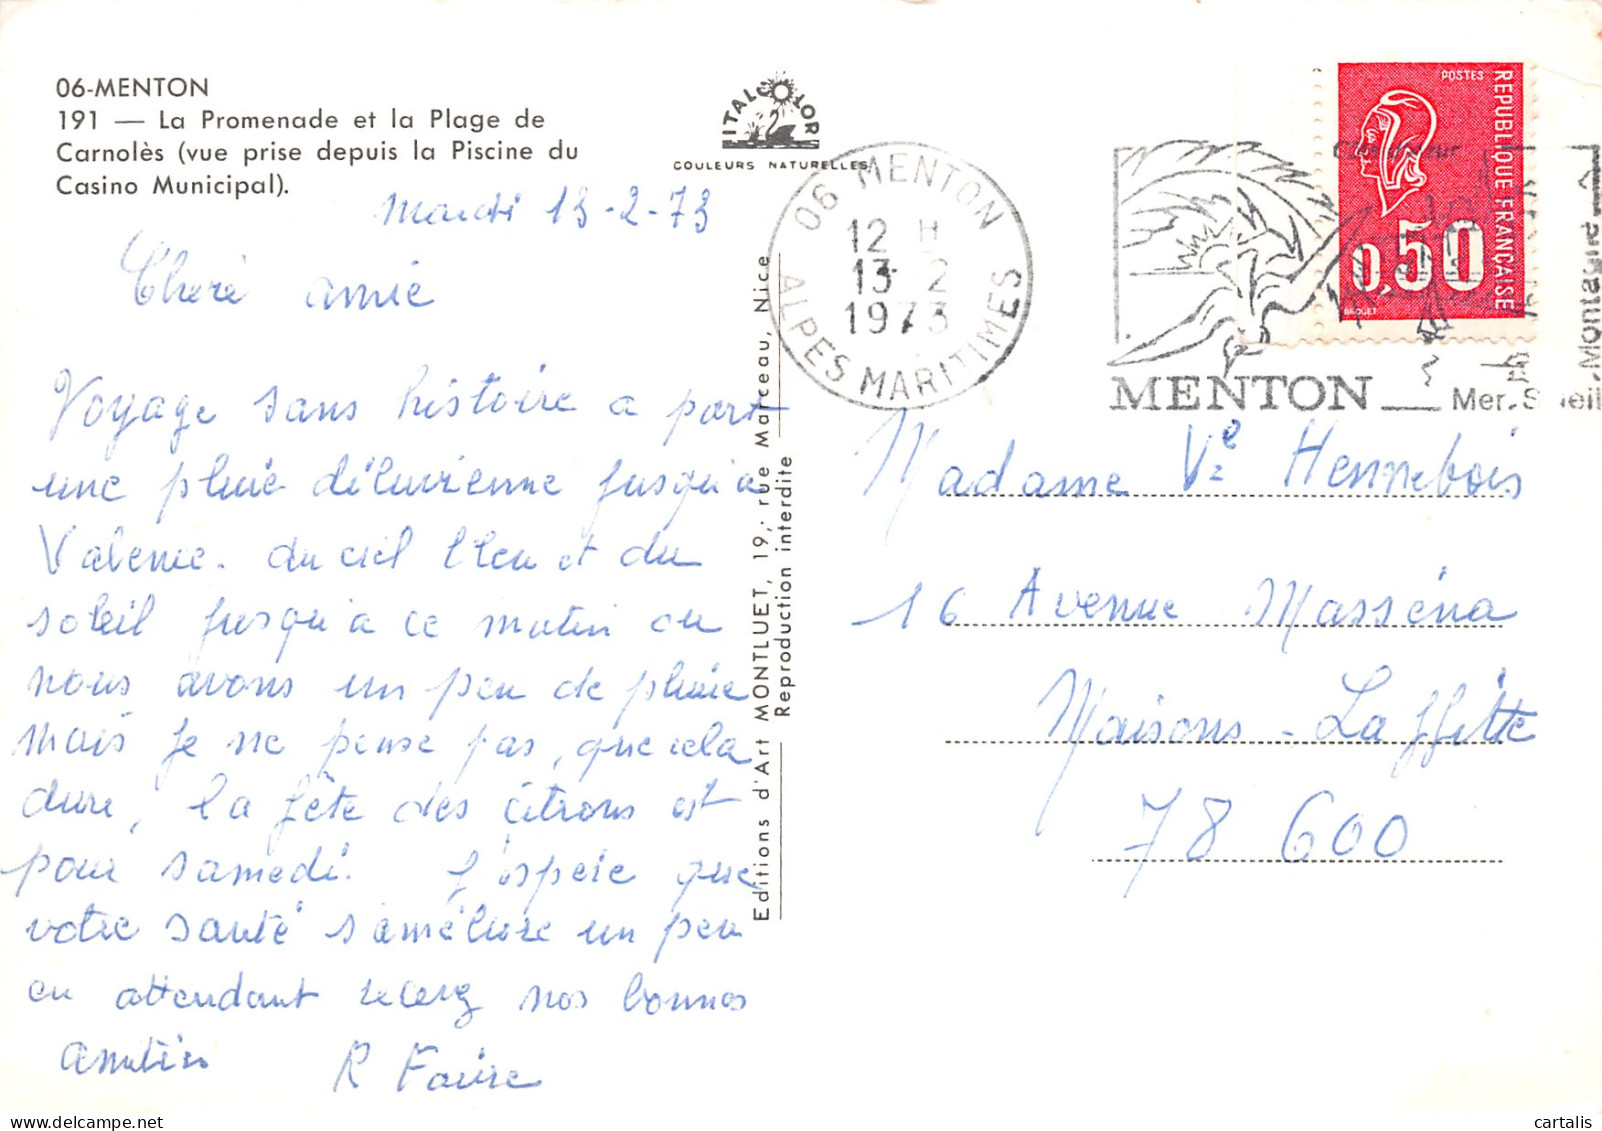 06-MENTON
191 — La Promenade et la Plage de
Carnolès (vue prise depuis la Piscine du
Casino Municipal).
ITALCOLOR
COULEURS NATURELLES
Mardi 13-2-73
Chère amie
Voyage sans histoire a part
une pluie diluvienne jusqu'a
Valence. du ciel bleu et du
soleil jusqu'a ce matin ou
nous avons un peu de pluie
mais je ne pense pas, que cela
dure, la fête des citrons est
pour samedi. J'espère que
votre santé s'améliore un peu
en attendant recevez nos bonnes
amitiés R Faure
Editions d'Art MONTLUET, 19, rue Marceau, Nice
Reproduction interdite
06 MENTON
12 H
13-2
1973
ALPES MARITIMES
MENTON — Mer. Soleil. Montagne
POSTES
REPUBLIQUE FRANÇAISE
0,50
BEQUET
Madame Ve Hennebois
16 Avenue Masséna
Maisons-Laffitte
78 600
cartalis
delcampe.net